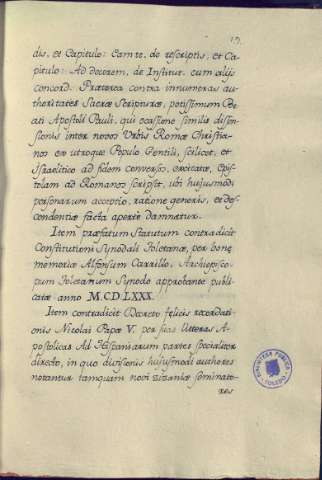 19.
dis, et Capitulo: Eam te, de rescriptis, et Ca-
pitulo: Ad decorem, de Institut. cum alijs
concord. Præterea contra innumeras au-
thoritates Sacræ Scripturæ, potissimum Be-
ati Apostoli Pauli, qui ocasione similis disen-
sionis inter novos Urbis Romæ Christia-
nos ex utroque Populo Gentili, scilicet, et
Israelitico ad fidem converso, exortæ, Epis-
tolam ad Romanos scripsit, ubi hujusmodi
personarum acceptio, ratione generis, et des-
cendentiæ facta aperte damnatur.
Item præfatum Statutum contradicit
Constitutioni Synodali Toletanæ, per bonæ
memoriæ Alfonsum Carrillo, Archiepisco-
pum Toletanum Synodo approbante publi-
catæ anno M.CD.LXXX.
Item contradicit Decreto felicis recordati-
onis Nicolai Papæ V. per suas litteras A-
postolicas Ad Hispaniarum partes specialiter
directo, in quo divisionis hujusmodi authores
notantur tamquam novi zizaniæ seminato-
res
BIBLIOTECA PUBLICA
TOLEDO